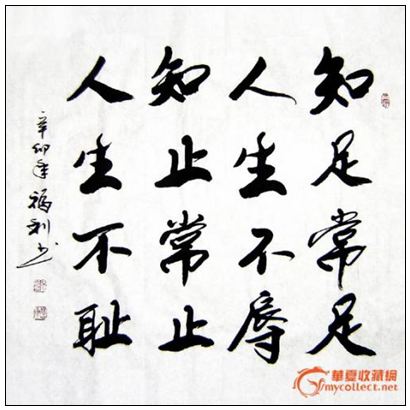 知足常足
人生不辱
知止常止
人生不耻
辛卯年福利书
華夏收藏網
mycollect.net